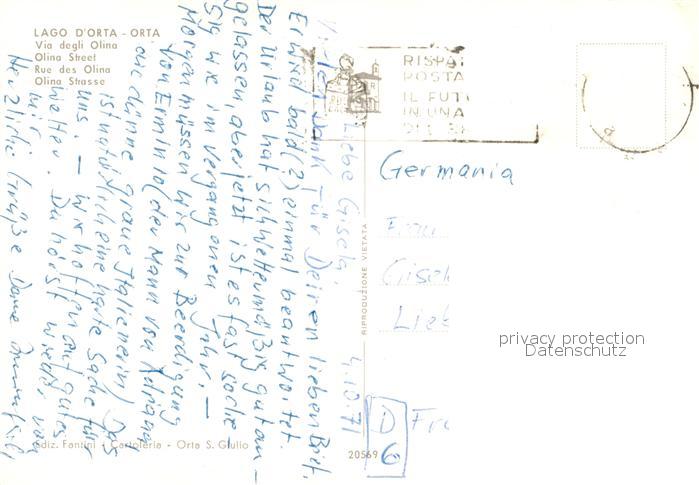 LAGO D'ORTA - ORTA
Via degli Olina
Olina Street
Rue des Olina
Olina Strasse
4.10.71
Liebe Gisela,
Vielen Dank für Deinen lieben Brief.
Er wird bald (?) einmal beantwortet.
Der Urlaub hat sich wettermäßig gut an-
gelassen, aber jetzt ist es fast so
wie im vergangenen Jahr. —
Morgen müssen wir zur Beerdigung
von Erminio (der Mann von Adriana
die dünne graue Italienerin) Das
ist natürlich eine harte Sache für
uns. — Wir hoffen auf gutes
Wetter. Du hörst wieder von
mir
Herzliche Grüße Deine
Ediz. Fantini - Cartoleria - Orta S. Giulio
RIPRODUZIONE VIETATA
20569
RISPA
POSTA
IL FUT
IN UNA
Germania
Frau
Gisel
Lieb
D
6
Fr
privacy protection
Datenschutz